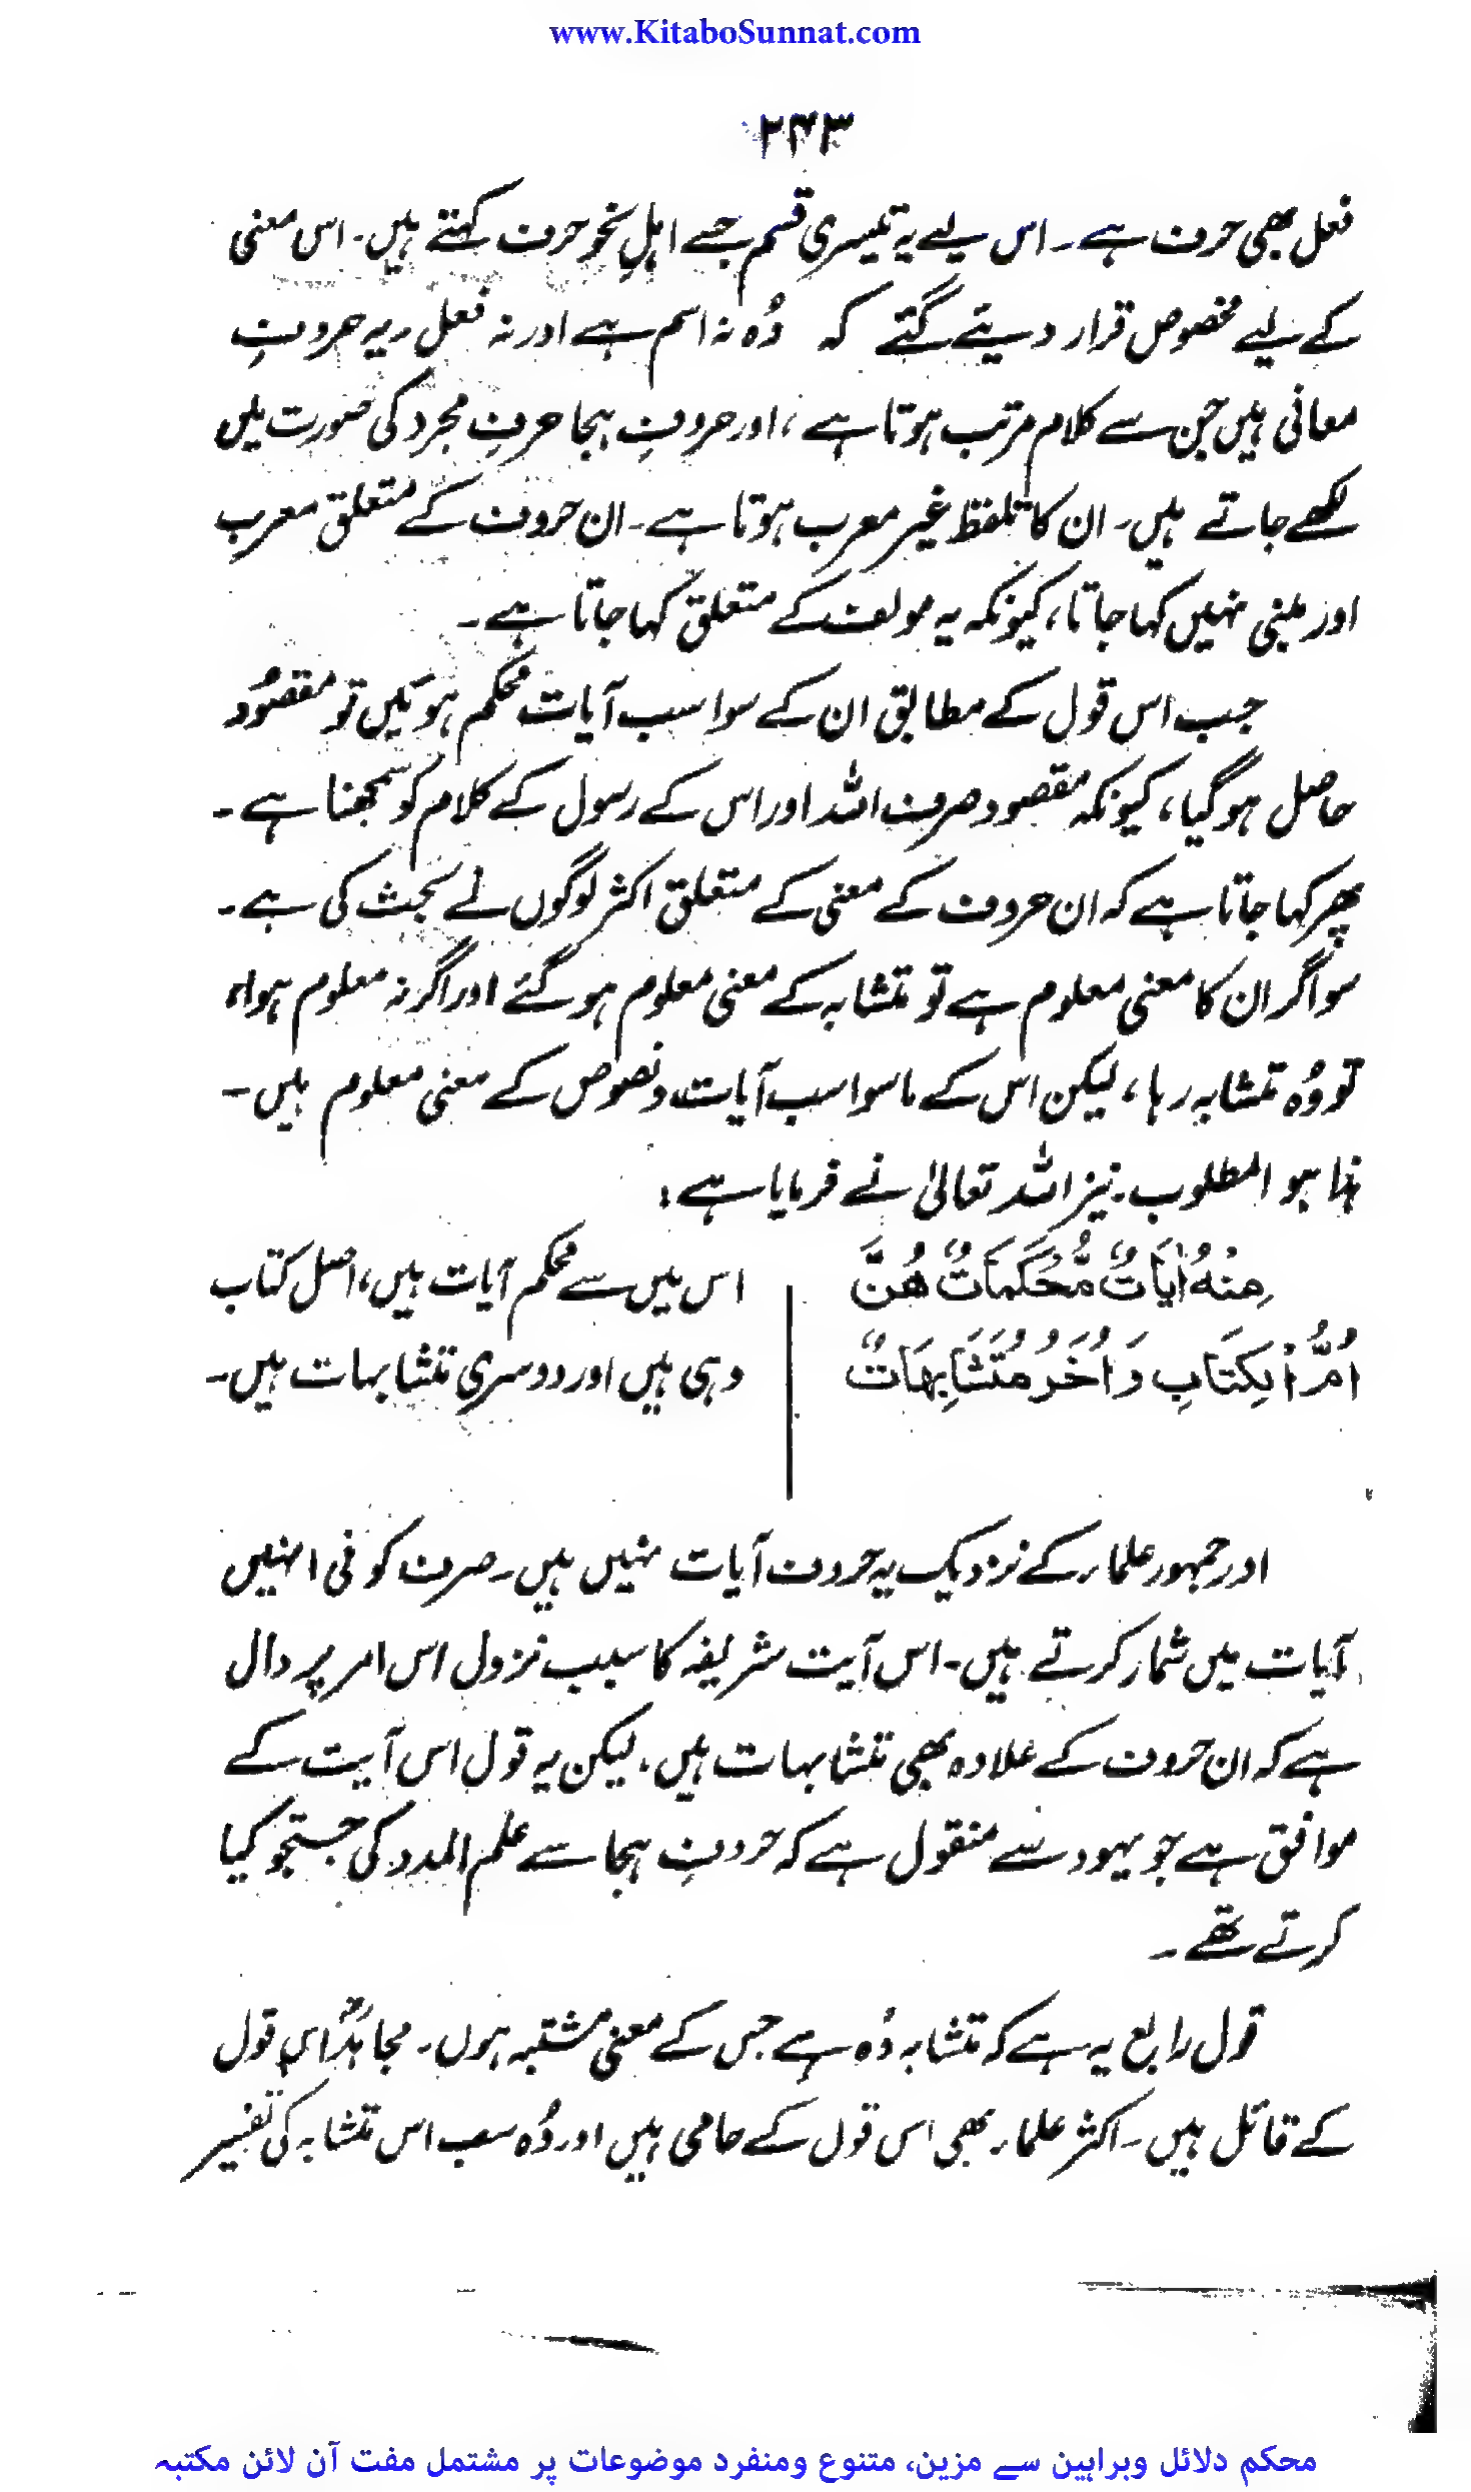 www.KitaboSunnat.com
۲۴۳
فعل بھی حرف ہے۔ اس لیے یہ تیسری قسم جسے اہلِ نحو حرف کہتے ہیں۔ اس معنی
کے لیے مخصوص قرار دیئے گئے کہ وُہ نہ اسم ہے اور نہ فعل۔ یہ حروفِ
معانی ہیں جن سے کلام مرتب ہوتا ہے، اور حروفِ ہجا حرفِ مجرد کی صورت میں
لکھے جاتے ہیں۔ ان کا تلفظ غیر معرب ہوتا ہے۔ ان حروف کے متعلق معرب
اور مبنی نہیں کہا جاتا، کیونکہ یہ مولف کے متعلق کہا جاتا ہے۔
جب اس قول کے مطابق ان کے سوا سب آیات محکم ہوئیں تو مقصُود
حاصل ہو گیا، کیونکہ مقصود صرف اللہ اور اس کے رسول کے کلام کو سمجھنا ہے۔
پھر کہا جاتا ہے کہ ان حروف کے معنی کے متعلق اکثر لوگوں نے بحث کی ہے۔
سو اگر ان کا معنی معلوم ہے تو متشابہ کے معنی معلوم ہو گئے اور اگر نہ معلوم ہوا،
تو وُہ متشابہ رہا، لیکن اس کے ماسوا سب آیات و نصوص کے معنی معلوم ہیں۔
ہٰذا ہو المطلوب۔ نیز اللہ تعالیٰ نے فرمایا ہے:
مِنْهُ اٰيَاتٌ مُّحْكَمَاتٌ هُنَّ
اُمُّ الْكِتَابِ وَاُخَرُ مُتَشَابِهَاتٌ
اس میں سے محکم آیات ہیں، اصل کتاب
وہی ہیں اور دوسری متشابہات ہیں۔
اور جمہور علماء کے نزدیک یہ حروف آیات نہیں ہیں۔ صرف کوفی انہیں
آیات میں شمار کرتے ہیں۔ اس آیت شریفہ کا سبب نزول اس امر پر دال
ہے کہ ان حروف کے علاوہ بھی متشابہات ہیں۔ لیکن یہ قول اس آیت کے
موافق ہے جو یہود سے منقول ہے کہ حروفِ ہجا سے علم المدد کی جستجو کیا
کرتے تھے۔
قول رابع یہ ہے کہ متشابہ وُہ ہے جس کے معنی مشتبہ ہوں۔ مجاہدؒ اس قول
کے قائل ہیں۔ اکثر علماء بھی اس قول کے حامی ہیں اور وُہ سب اس متشابہ کی تفسیر
محکم دلائل وبراہین سے مزین، متنوع ومنفرد موضوعات پر مشتمل مفت آن لائن مکتبہ